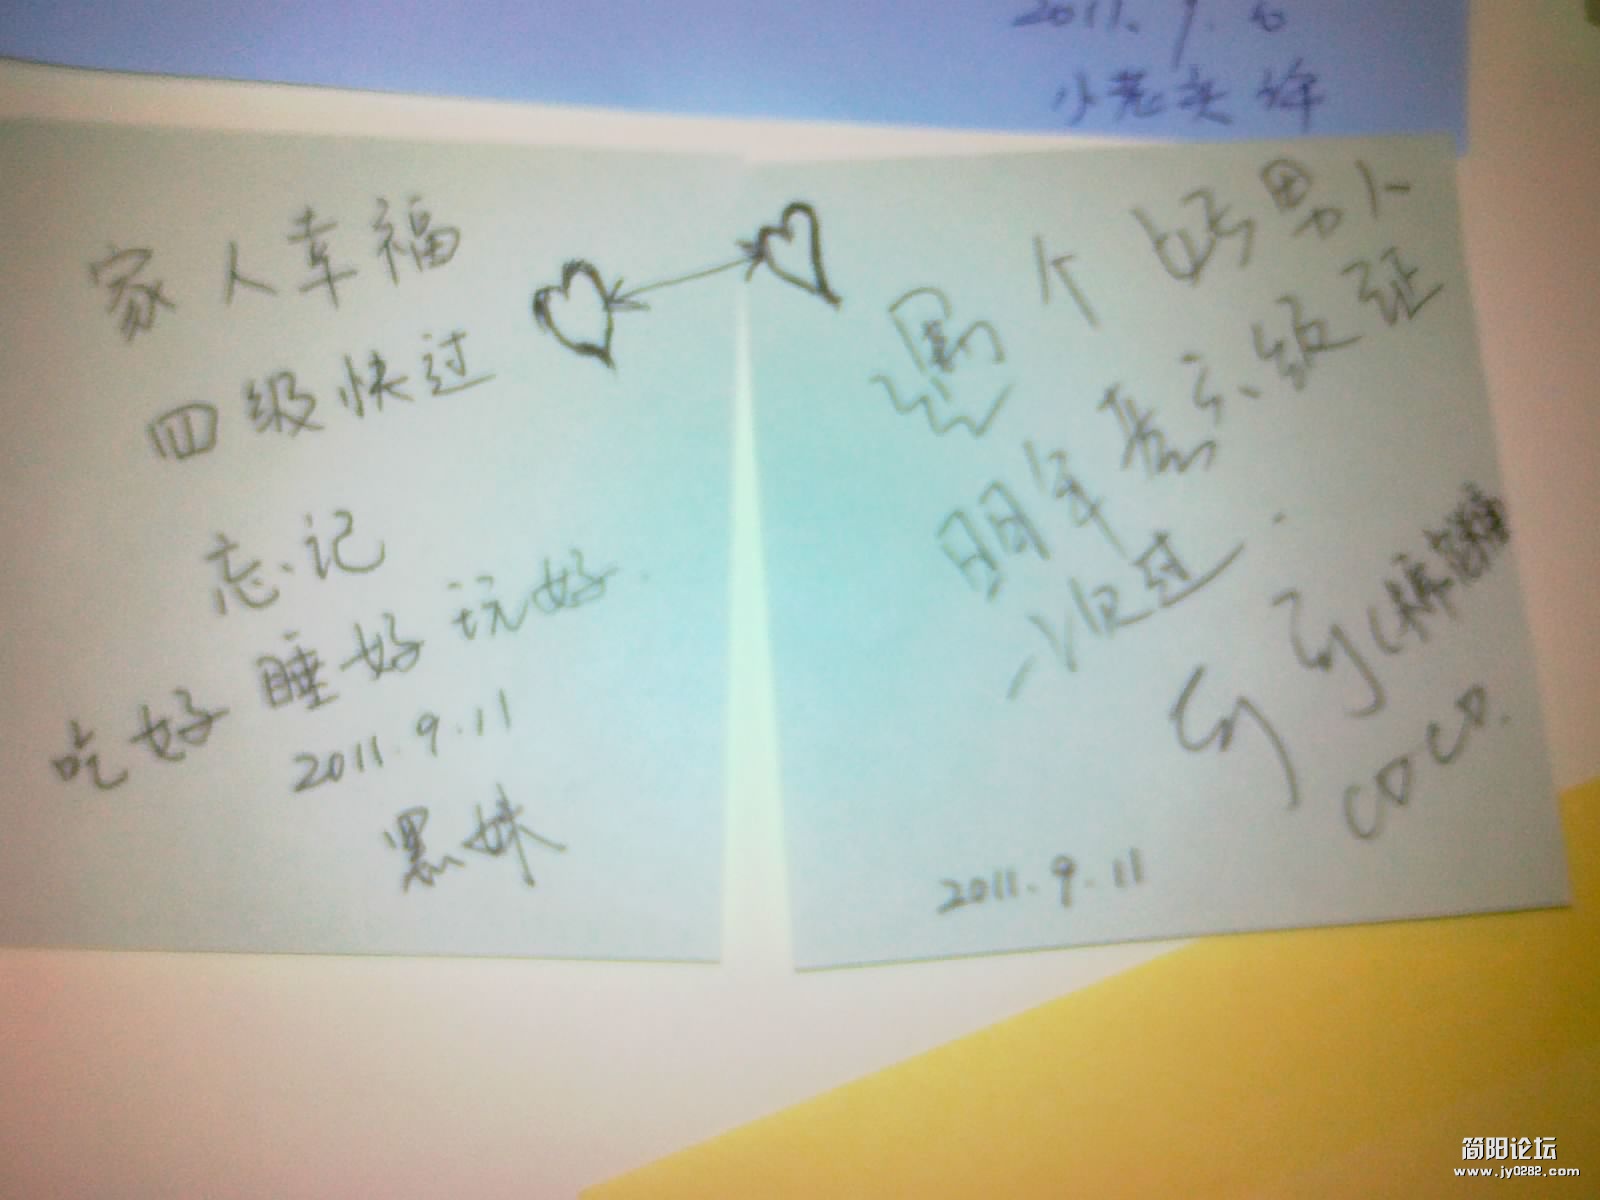 2011.9.6
小老头 许
家人幸福
四级快过
忘记
吃好 睡好 玩好.
2011.9.11
黑妹
个 好男人
明年 会计 级证
一次过.
COCO.
2011.9.11
简阳论坛
www.jy0282.com